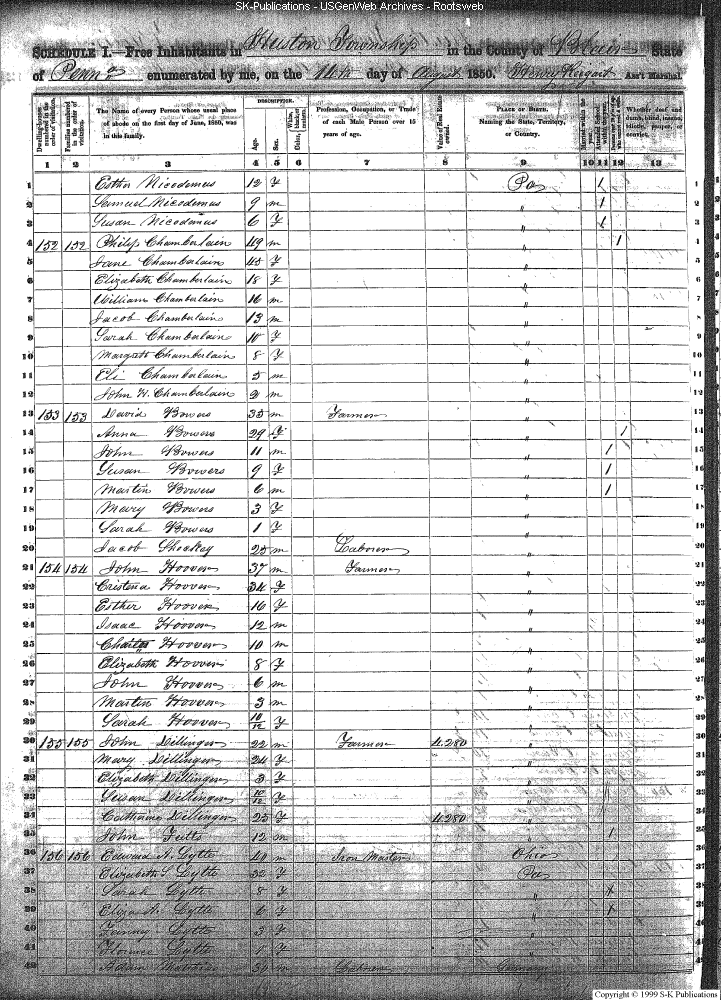 SK-Publications - USGenWeb Archives - Rootsweb
SCHEDULE I.—Free Inhabitants in Huston Township in the County of Blair State
of Penna enumerated by me, on the 14th day of August 1850. Ass't Marshal.
Dwelling-houses numbered in the order of visitation.
Families numbered in the order of visitation.
The Name of every Person whose usual place of abode on the first day of June, 1850, was in this family.
DESCRIPTION.
Age.
Sex.
White, black, or mulatto.
Profession, Occupation, or Trade of each Male Person over 15 years of age.
Value of Real Estate owned.
PLACE OF BIRTH. Naming the State, Territory, or Country.
Married within the year.
Attended School within the year.
Whether deaf and dumb, blind, insane, idiotic, pauper, or convict.
1 2 3 4 5 6 7 8 9 10 11 12 13
1 Esther Nicodemus 12 F Pa 1 1
2 Samuel Nicodemus 9 m " 1 2
3 Susan Nicodemus 6 F " 1 3
4 152 152 Philip Chamberlain 49 m " 1
5 Jane Chamberlain 45 F "
6 Elizabeth Chamberlain 18 F "
7 William Chamberlain 16 m "
8 Jacob Chamberlain 13 m "
9 Sarah Chamberlain 10 F "
10 Margrett Chamberlain 8 F "
11 Eli Chamberlain 5 m "
12 John W. Chamberlain 2 m "
13 153 153 David Bowers 35 m Farmer "
14 Anna Bowers 29 F " 1
15 John Bowers 11 m " 1
16 Susan Bowers 9 F " 1
17 Martin Bowers 6 m " 1
18 Mary Bowers 3 F "
19 Sarah Bowers 1 F "
20 Jacob 25 m Laborer "
21 154 154 John Hoover 37 m Farmer "
22 Cristena Hoover 34 F "
23 Esther Hoover 16 F "
24 Isaac Hoover 12 m "
25 Charles Hoover 10 m "
26 Elizabeth Hoover 8 F "
27 John Hoover 6 m "
28 Martin Hoover 3 m "
29 Sarah Hoover 10/12 F "
30 155 155 John Dillinger 22 m Farmer 4,280 "
31 Mary Dillinger 24 F "
32 Elizabeth Dillinger 3 F "
33 Susan Dillinger 10/12 F "
34 Catharine Dillinger 25 F 4,280 "
35 John 12 m " 1
36 156 156 Edward A. Lytle 40 m Iron Master Ohio
37 Elizabeth S. Lytle 32 F Pa
38 Sarah Lytle 8 F " x
39 Eliza A. Lytle 6 F " x
40 Fanny Lytle 3 F "
41 Florence Lytle 1 F "
42 Adam m
Copyright © 1999 S-K Publications